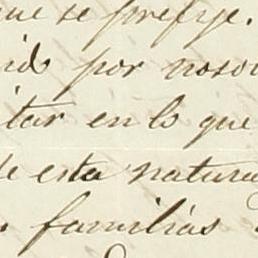 que se prefije.
por
itar en lo que
de esta natura
familias